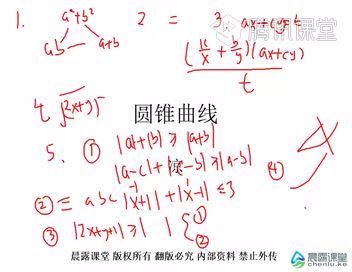 1. a²+b² 2 = 3. ax+cy=t
腾讯课堂
ab a+b
(k/x + 3/y)(ax+cy)
t
4
圆锥曲线
5. ① |a|+|b| ≥ |a+b|
|a-c|+|c-b| ≥ |a-b|
② = abc |x+1|+|x-1| ≤ 3 (4)
③ |2x+y+1| ≥ | | { ①
②
晨露课堂 版权所有 翻版必究 内部资料 禁止外传
晨露课堂
chenlu.ke